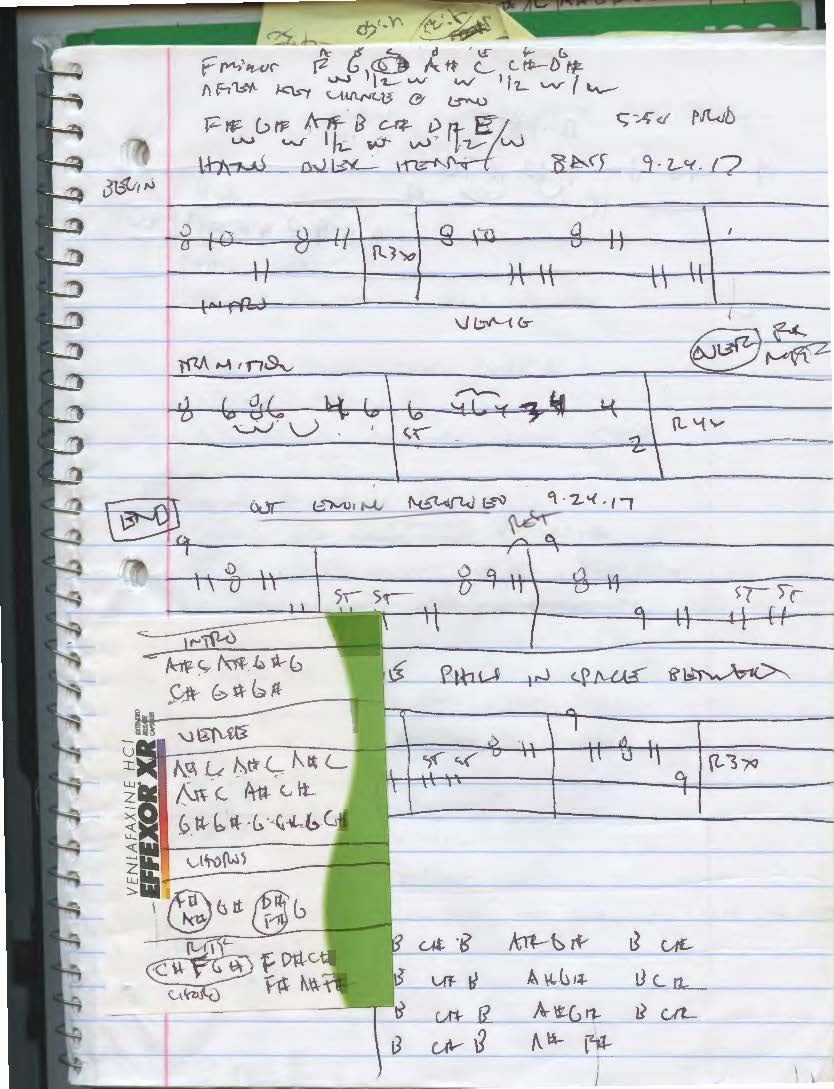 F minor F G G# A# C C# D#
W 1/2 W W 1/2 W / W
AFTER KEY CHANGE @ END
F# G# A# B C# D# E/
W W 1/2 W W 1/2 / W
5:54 PROD
HAND OVER HEART BASS 9.24.17
BEGIN
8 10 8 11 R3x 8 10 8 11
11 11 11 11 11
INTRO
VERSE
OVER FOR
TRANSITION
8 6 8 6 4 6 6 4 6 4 3 4 4 R4x
ST 2
END
OUT ENDING 9.24.17
9 9
11 8 11 8 9 11 8 11
11 ST ST 11 9 11 ST ST
IN SPACE BETWEEN
9 9
ST ST 8 11 11 8 11 R3x
11 11 9
INTRO
A# C A# G# G
C# G# G#
VERSE
A# C A# C A# C
A# C A# C#
G# G# G G G# G C#
CHORUS
F# A# G# D# F# G
RIFF
C# F G# F D# C#
F# A# F#
CHORD
VENLAFAXINE HCl
EFFEXOR XR
EXTENDED
RELEASE
CAPSULES
B C# B A# G# B C#
B C# B A# G# B C#
B C# B A# G# B C#
B C# B A# F#